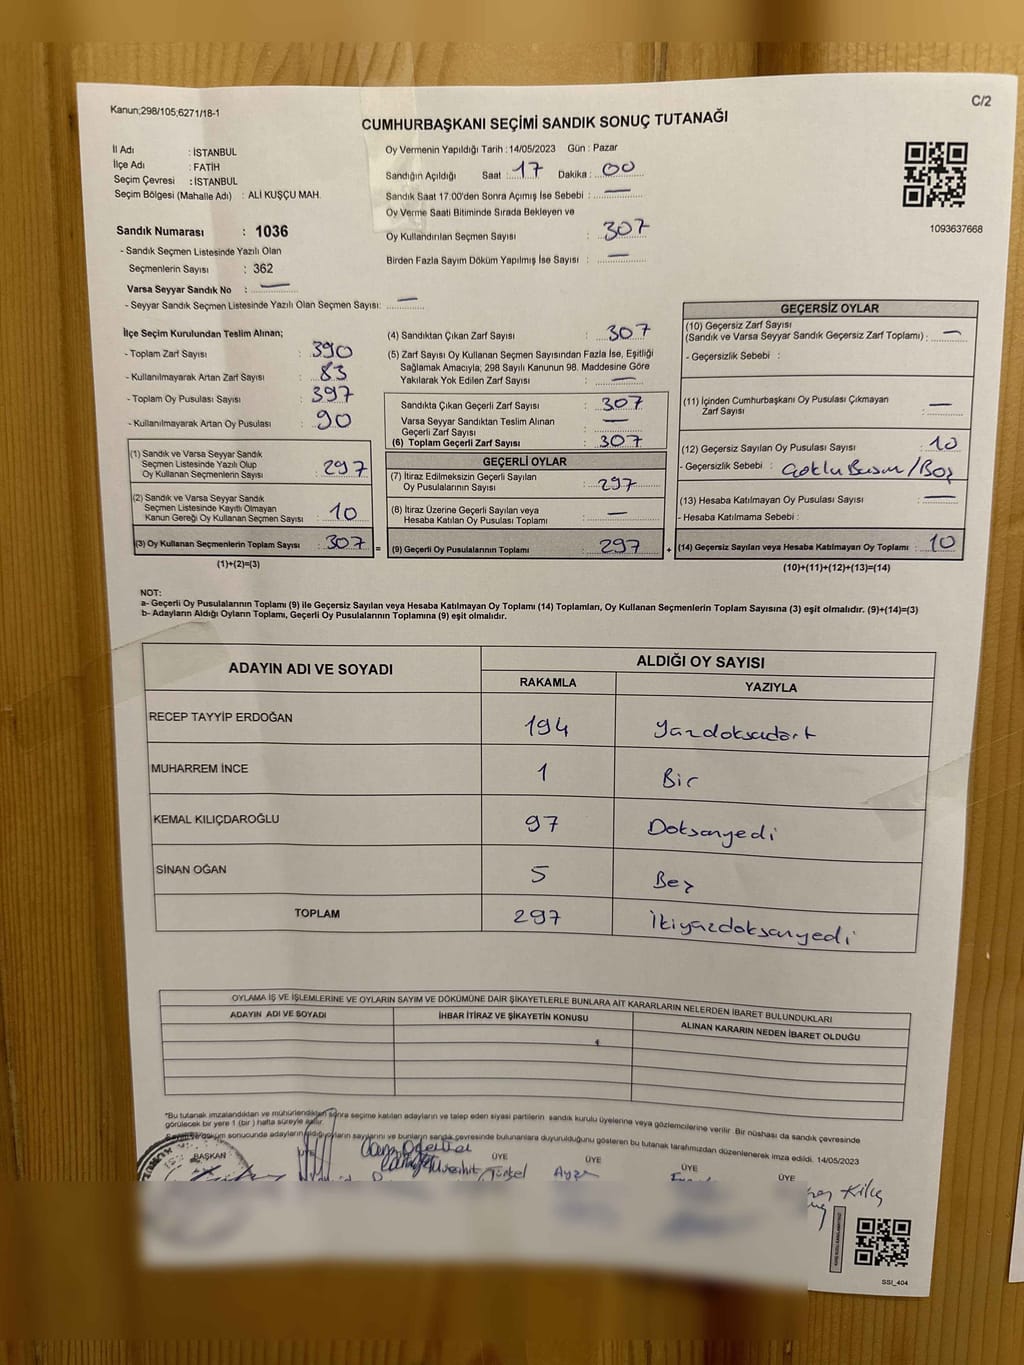 Kanun;298/105;6271/18-1
C/2
CUMHURBAŞKANI SEÇİMİ SANDIK SONUÇ TUTANAĞI
İl Adı : İSTANBUL
İlçe Adı : FATİH
Seçim Çevresi : İSTANBUL
Seçim Bölgesi (Mahalle Adı) : ALİ KUŞÇU MAH.
Oy Vermenin Yapıldığı Tarih : 14/05/2023 Gün : Pazar
Sandığın Açıldığı Saat : 17 Dakika : 00
Sandık Saat 17.00'den Sonra Açımış İse Sebebi : —
Oy Verme Saati Bitiminde Sırada Bekleyen ve
Oy Kullandırılan Seçmen Sayısı : 307
Birden Fazla Sayım Döküm Yapılmış İse Sayısı : —
1093637668
Sandık Numarası : 1036
- Sandık Seçmen Listesinde Yazılı Olan
Seçmenlerin Sayısı : 362
Varsa Seyyar Sandık No : —
- Seyyar Sandık Seçmen Listesinde Yazılı Olan Seçmen Sayısı: —
İlçe Seçim Kurulundan Teslim Alınan;
- Toplam Zarf Sayısı : 390
- Kullanılmayarak Artan Zarf Sayısı : 83
- Toplam Oy Pusulası Sayısı : 397
- Kullanılmayarak Artan Oy Pusulası : 90
(1) Sandık ve Varsa Seyyar Sandık
Seçmen Listesinde Yazılı Olup
Oy Kullanan Seçmenlerin Sayısı : 297
(2) Sandık ve Varsa Seyyar Sandık
Seçmen Listesinde Kayıtlı Olmayan
Kanun Gereği Oy Kullanan Seçmen Sayısı : 10
(3) Oy Kullanan Seçmenlerin Toplam Sayısı : 307
(1)+(2)=(3)
(4) Sandıktan Çıkan Zarf Sayısı : 307
(5) Zarf Sayısı Oy Kullanan Seçmen Sayısından Fazla İse, Eşitliği
Sağlamak Amacıyla; 298 Sayılı Kanunun 98. Maddesine Göre
Yakılarak Yok Edilen Zarf Sayısı : —
Sandıkta Çıkan Geçerli Zarf Sayısı : 307
Varsa Seyyar Sandıktan Teslim Alınan
Geçerli Zarf Sayısı : —
(6) Toplam Geçerli Zarf Sayısı : 307
GEÇERLİ OYLAR
(7) İtiraz Edilmeksizin Geçerli Sayılan
Oy Pusulalarının Sayısı : 297
(8) İtiraz Üzerine Geçerli Sayılan veya
Hesaba Katılan Oy Pusulası Toplamı : —
= (9) Geçerli Oy Pusulalarının Toplamı : 297
GEÇERSİZ OYLAR
(10) Geçersiz Zarf Sayısı
(Sandık ve Varsa Seyyar Sandık Geçersiz Zarf Toplamı) : —
- Geçersizlik Sebebi :
(11) İçinden Cumhurbaşkanı Oy Pusulası Çıkmayan
Zarf Sayısı : —
(12) Geçersiz Sayılan Oy Pusulası Sayısı : 10
- Geçersizlik Sebebi : Çoklu Basım/Boş
(13) Hesaba Katılmayan Oy Pusulası Sayısı : —
- Hesaba Katılmama Sebebi :
+ (14) Geçersiz Sayılan veya Hesaba Katılmayan Oy Toplamı : 10
(10)+(11)+(12)+(13)=(14)
NOT:
a- Geçerli Oy Pusulalarının Toplamı (9) ile Geçersiz Sayılan veya Hesaba Katılmayan Oy Toplamı (14) Toplamları, Oy Kullanan Seçmenlerin Toplam Sayısına (3) eşit olmalıdır. (9)+(14)=(3)
b- Adayların Aldığı Oyların Toplamı, Geçerli Oy Pusulalarının Toplamına (9) eşit olmalıdır.
ADAYIN ADI VE SOYADI ALDIĞI OY SAYISI
RAKAMLA YAZIYLA
RECEP TAYYİP ERDOĞAN 194 Yüzdoksadört
MUHARREM İNCE 1 Bir
KEMAL KILIÇDAROĞLU 97 Doksanyedi
SİNAN OĞAN 5 Beş
TOPLAM 297 İkiyüzdoksanyedi
OYLAMA İŞ VE İŞLEMLERİNE VE OYLARIN SAYIM VE DÖKÜMÜNE DAİR ŞİKAYETLERLE BUNLARA AİT KARARLARIN NELERDEN İBARET BULUNDUKLARI
ADAYIN ADI VE SOYADI İHBAR İTİRAZ VE ŞİKAYETİN KONUSU ALINAN KARARIN NEDEN İBARET OLDUĞU
*Bu tutanak imzalandıktan ve mühürlendikten sonra seçime katılan adayların ve talep eden siyasi partilerin sandık kurulu üyelerine veya gözlemcilerine verilir. Bir nüshası da sandık çevresinde
görülecek bir yere 1 (bir) hafta süreyle asılır.
döküm sonucunda adayların aldığı oyların sayılarını ve bunların sandık çevresinde bulunanlara duyurulduğunu gösteren bu tutanak tarafımızdan düzenlenerek imza edildi. 14/05/2023
BAŞKAN ÜYE ÜYE ÜYE ÜYE
Kılıç
SSI_404